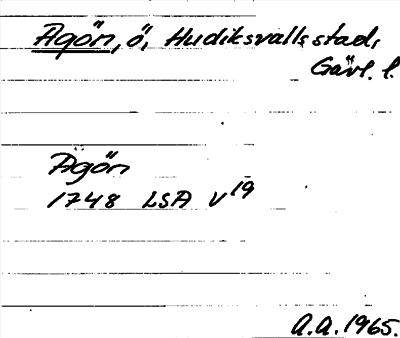 Agön, ö, Hudiksvalls stad,
Gävl. l.
Ägön
1748 LSA V19
A.A. 1965.